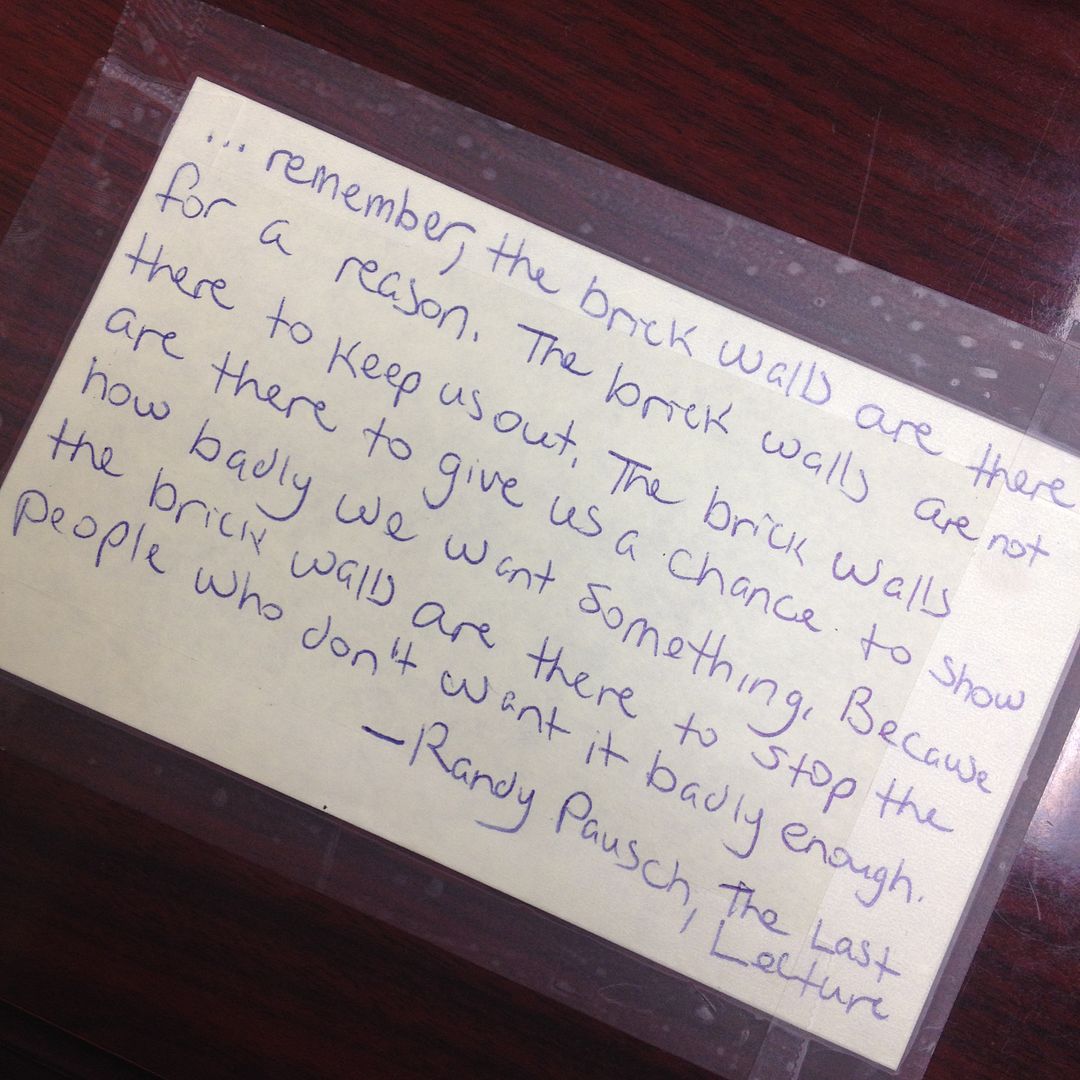 ... remember, the brick walls are there
for a reason. The brick walls are not
there to keep us out. The brick walls
are there to give us a chance to show
how badly we want something. Because
the brick walls are there to stop the
people who don't want it badly enough.
-Randy Pausch, The Last
Lecture